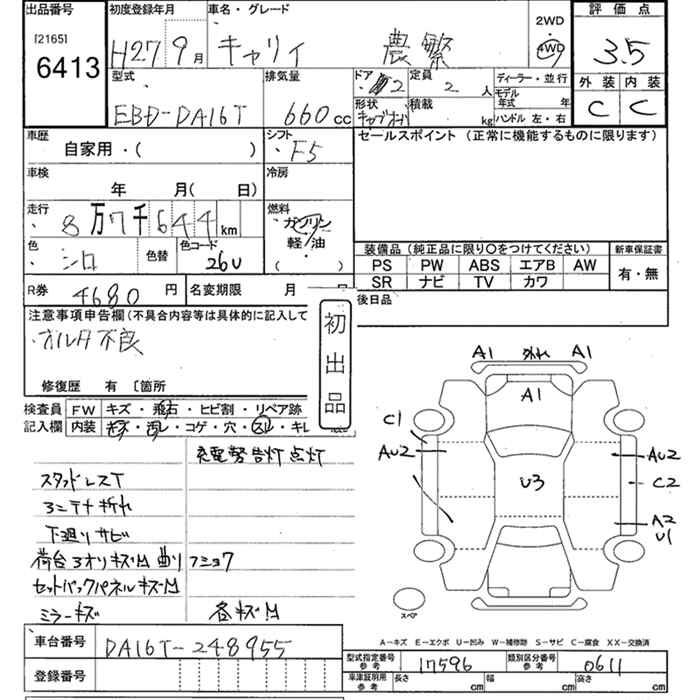 出品番号 初度登録年月 車名・グレード 評価点
[2165] 6413 H27年9月 キャリイ 農繁 2WD 4WD 3.5
型式 排気量 ドア 定員 ディーラー・並行 外装 内装
EBD-DA16T 660cc 2 2人 モデル年式 年 C C
形状 積載 kg ハンドル 左・右
車歴 シフト セールスポイント (正常に機能するものに限ります)
自家用・( ) F5
車検 冷房
年 月( 日)
走行 燃料
8万7千644km ガソリン
軽/油
色 色替 色コード ( )
シロ 26U
装備品 (純正品に限り○をつけてください) 新車保証書
PS PW ABS エアB AW 有・無
SR ナビ TV カワ
R券 4680円 名変期限 月 日
後日品
注意事項申告欄(不具合内容等は具体的に記入して
オルタ不良
初出品
修復歴 有 〔箇所
検査員 FW キズ・飛石・ヒビ割・リペア跡
記入欄 内装 キズ・汚レ・コゲ・穴・スレ・キレ
充電警告灯点灯
スタッドレスT
アンテナ折れ
下廻りサビ
荷台3オリキズM曲り フニョウ
セットバックパネルキズM
ミラーキズ 各キズM
A1 外れ A1
A1
C1
AU2
U3
AU2
C2
A2
U1
スペア
A-キズ E-エクボ U-凹み W-補修跡 S-サビ C-腐食 XX-交換済
車台番号 DA16T-248955
型式指定番号 参考 17596 類別区分番号 参考 0611
登録番号
車庫証明用 参考 長さ cm 幅 cm 高さ cm